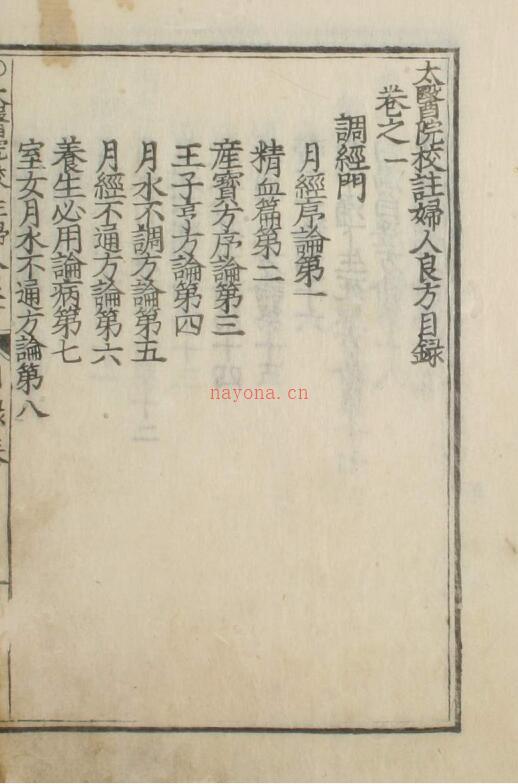 太醫院校註婦人良方目録
卷之一
調經門
月經序論第一
精血篇第二
產寶方序論第三
王子亨方論第四
月水不調方論第五
月經不通方論第六
養生必用論病第七
室女月水不通方論第八
nayona.cn